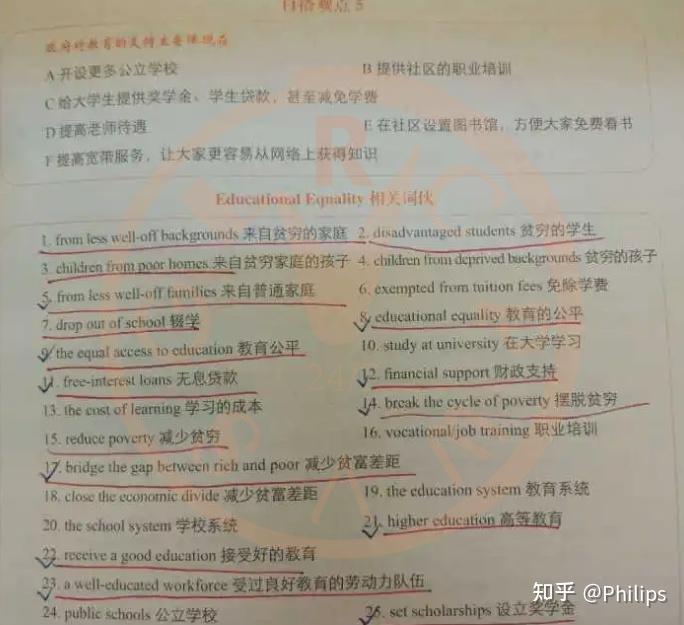 日倍观点 5
政府对教育的支持主要体现在
A 开设更多公立学校 B 提供社区的职业培训
C 给大学生提供奖学金、学生贷款，甚至减免学费
D 提高老师待遇 E 在社区设置图书馆，方便大家免费看书
F 提高宽带服务，让大家更容易从网络上获得知识
Educational Equality 相关词伙
1. from less well-off backgrounds 来自贫穷的家庭 2. disadvantaged students 贫穷的学生
3. children from poor homes 来自贫穷家庭的孩子 4. children from deprived backgrounds 贫穷的孩子
5. from less well-off families 来自普通家庭 6. exempted from tuition fees 免除学费
7. drop out of school 辍学 8. educational equality 教育的公平
9. the equal access to education 教育公平 10. study at university 在大学学习
11. free-interest loans 无息贷款 12. financial support 财政支持
13. the cost of learning 学习的成本 14. break the cycle of poverty 摆脱贫穷
15. reduce poverty 减少贫穷 16. vocational/job training 职业培训
17. bridge the gap between rich and poor 减少贫富差距
18. close the economic divide 减少贫富差距 19. the education system 教育系统
20. the school system 学校系统 21. higher education 高等教育
22. receive a good education 接受好的教育
23. a well-educated workforce 受过良好教育的劳动力队伍
24. public schools 公立学校 25. set scholarships 设立奖学金
知乎 @Philips